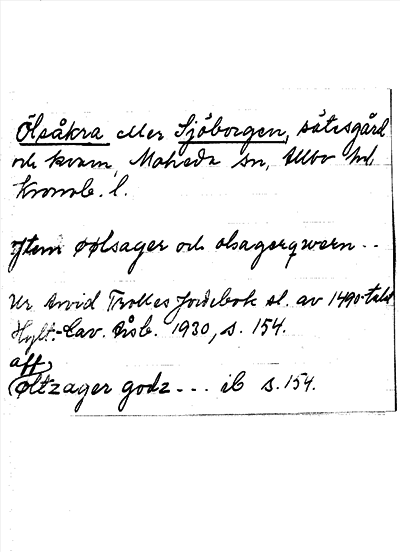 Ölsåkra eller Sjöborgen, sätesgård
och kvarn, Moheda sn, Allbo hd
Kronob. l.
Jtem øølsager och olsagerqwern - -
Ur Arvid Trolles Jordebok sl. av 1490-talet
Hylt.-Cav. Årsb. 1930, s. 154.
aff
(øltzager godz - - - ib s. 154.